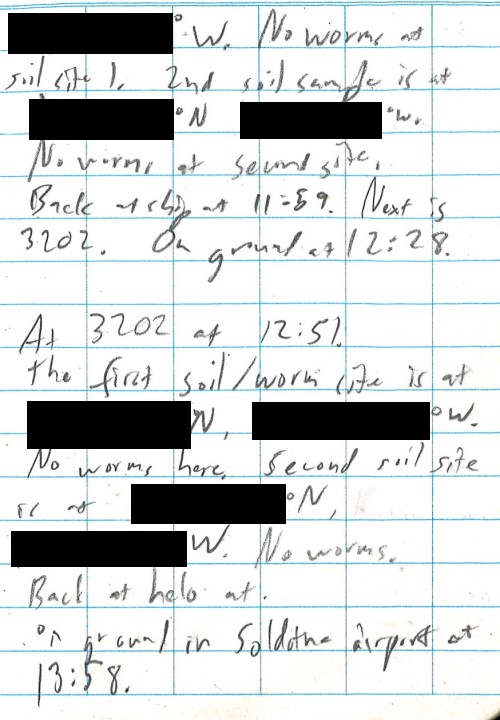 °W. No worms at
soil site 1. 2nd soil sample is at
°N °W.
No worms at second site.
Back at ship at 11:59. Next is
3202. On ground at 12:28.
At 3202 at 12:51.
The first soil/worm site is at
N, °W.
No worms here. Second soil site
is at °N,
W. No worms.
Back at helo at.
On ground in Soldotna airport at
13:58.